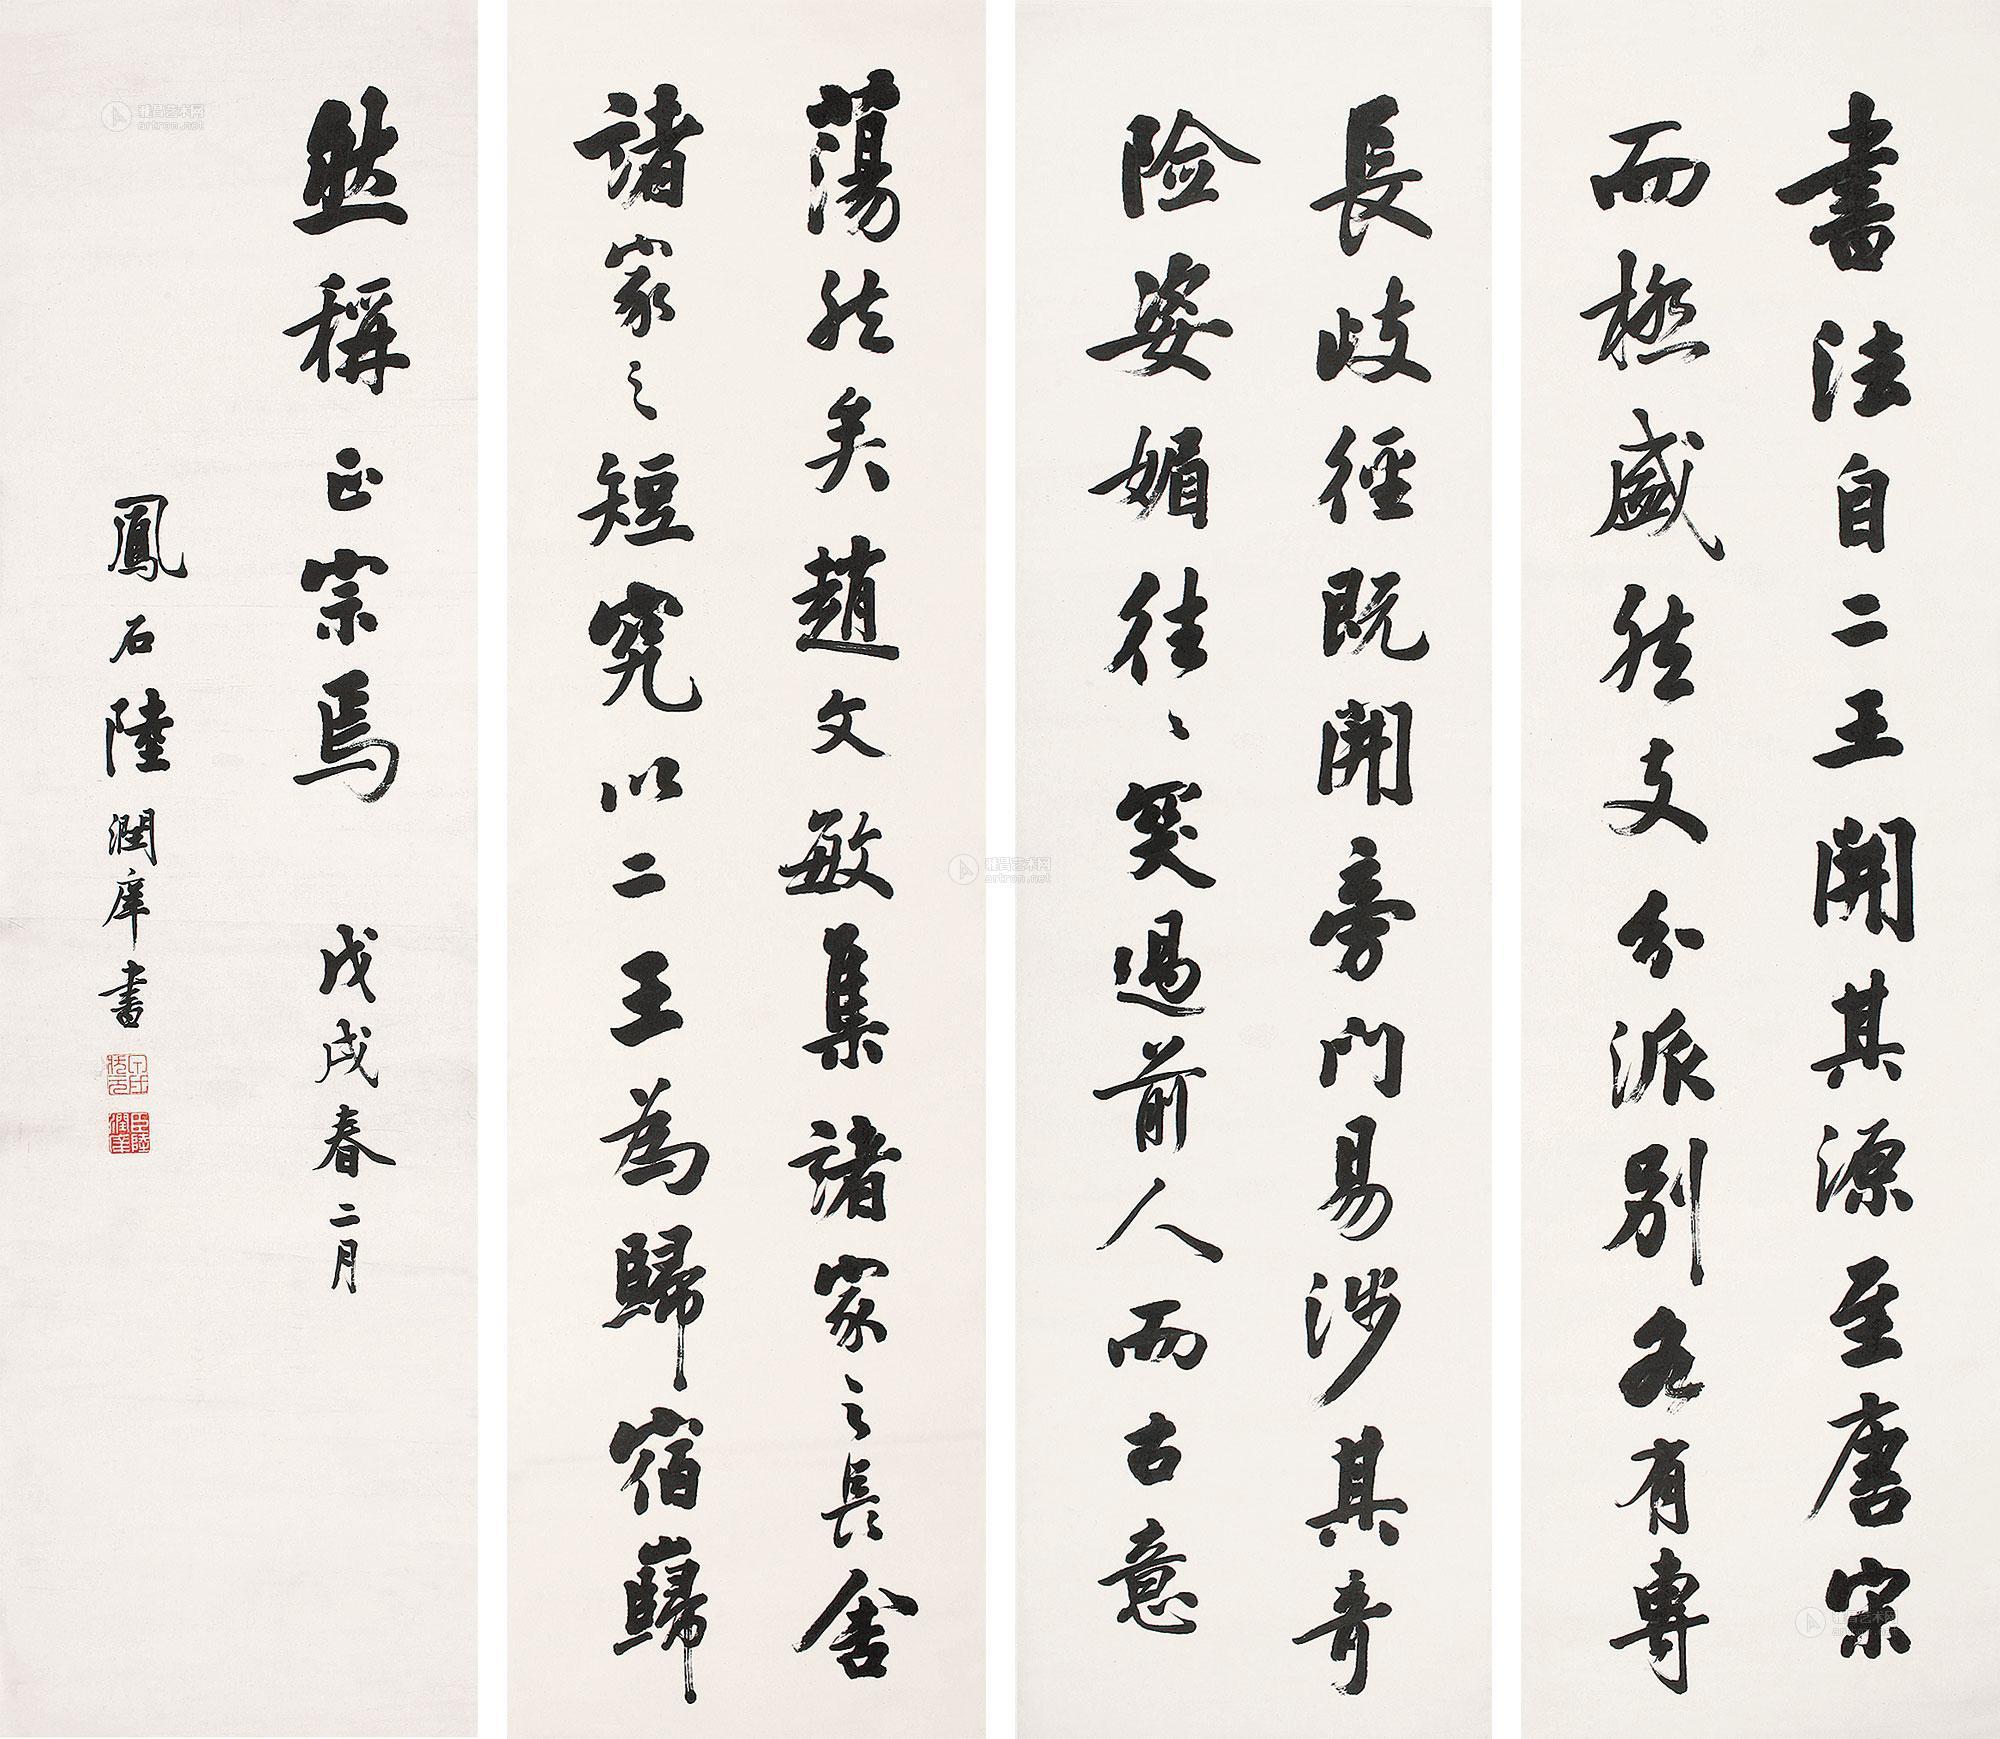 書法自二王開其源至唐宋
而極盛然支分派別各有專
長歧徑既開旁門易涉其奇
险姿媚往〻突過前人而古意
蕩然矣趙文敏集諸家之長舍
諸家之短究以二王為歸宿巋
然稱正宗焉 戊戌春二月
鳳石陸潤庠書
雅昌艺术网
artron.net
雅昌艺术网
artron.net
雅昌艺术网
artron.net